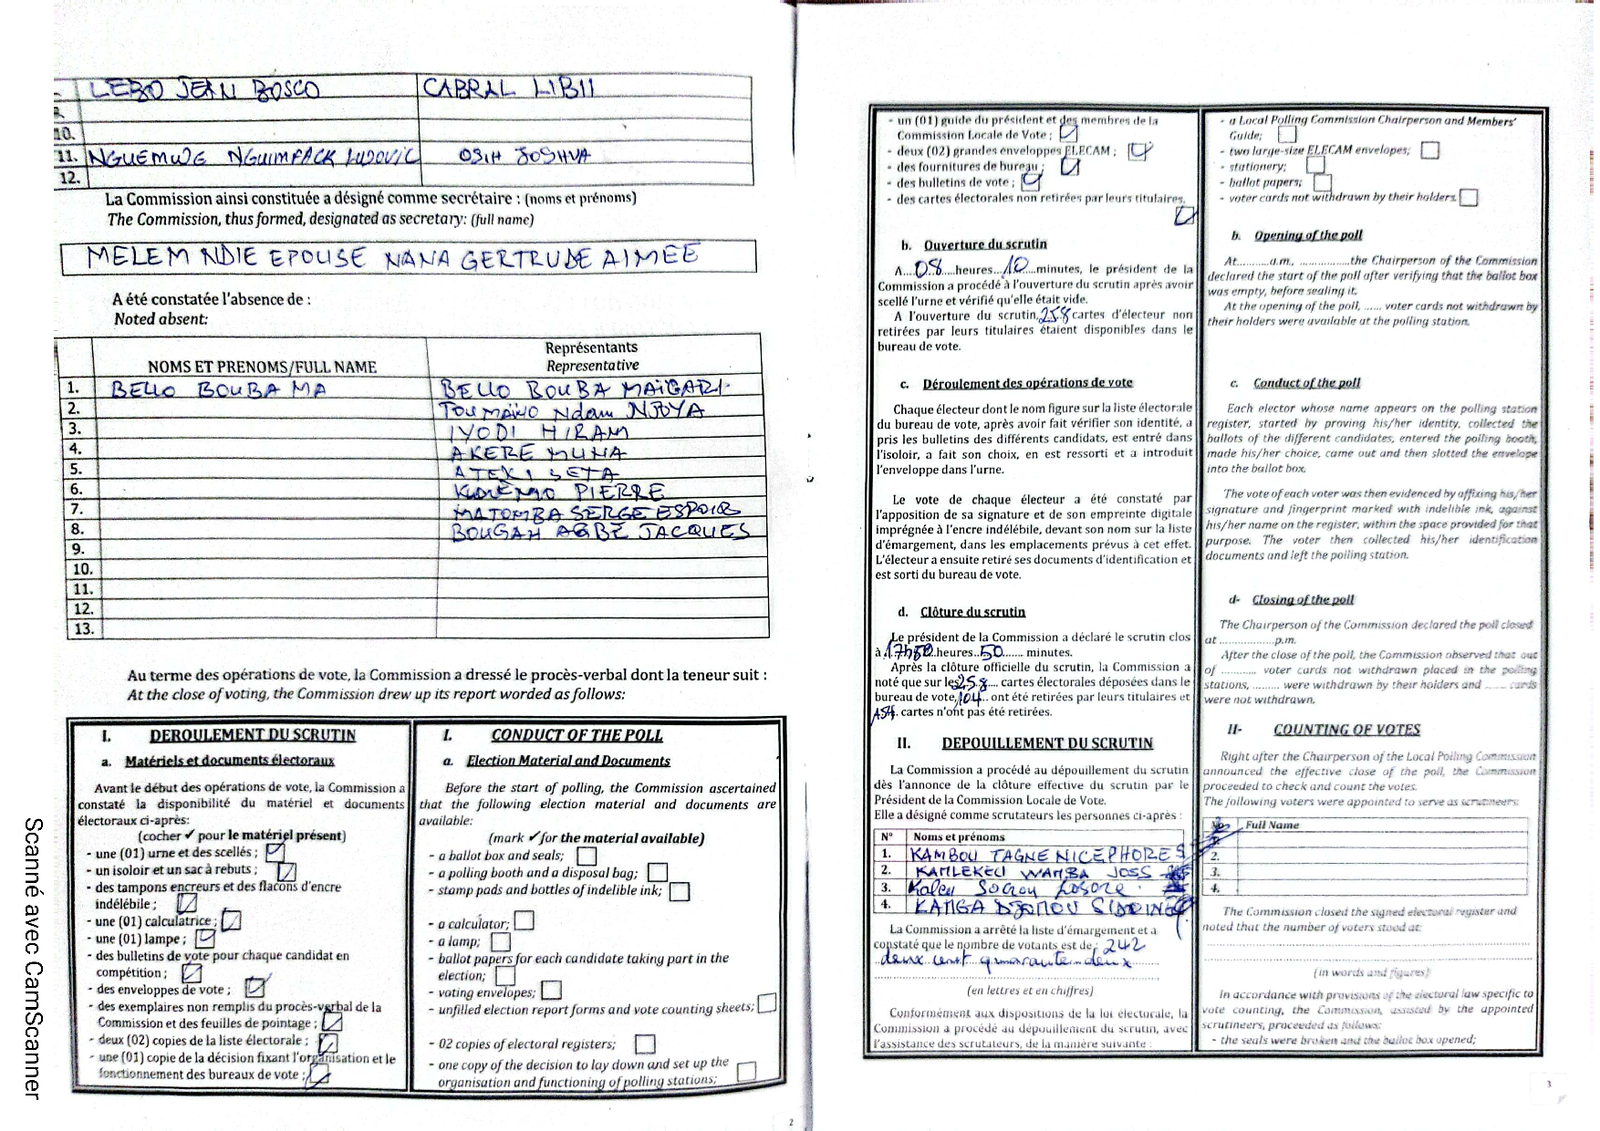 LEBO JEAN BOSCO CABRAL LIBII
9.
10.
11. NGUEMWE NGUIMFACK LUDOVIC OSIH JOSHUA
12.
La Commission ainsi constituée a désigné comme secrétaire : (noms et prénoms)
The Commission, thus formed, designated as secretary: (full name)
MELEM NDIE EPOUSE NANA GERTRUDE AIMEE
A été constatée l'absence de :
Noted absent:
NOMS ET PRENOMS/FULL NAME Représentants
Representative
1. BELLO BOUBA MA BELLO BOUBA MAÏGARI
2. TOUMAÏNO Ndam NJOYA
3. IYODI HIRAM
4. AKERE MUNA
5. ATEKI SETA
6. KWEMO PIERRE
7. MATOMBA SERGE ESPOIR
8. BOUGAH AGBE JACQUES
9.
10.
11.
12.
13.
Au terme des opérations de vote, la Commission a dressé le procès-verbal dont la teneur suit :
At the close of voting, the Commission drew up its report worded as follows:
I. DEROULEMENT DU SCRUTIN
a. Matériels et documents électoraux
Avant le début des opérations de vote, la Commission a
constaté la disponibilité du matériel et documents
électoraux ci-après:
(cocher ✓ pour le matériel présent)
- une (01) urne et des scellés ;
- un isoloir et un sac à rebuts ;
- des tampons encreurs et des flacons d'encre
indélébile ;
- une (01) calculatrice ;
- une (01) lampe ;
- des bulletins de vote pour chaque candidat en
compétition ;
- des enveloppes de vote ;
- des exemplaires non remplis du procès-verbal de la
Commission et des feuilles de pointage ;
- deux (02) copies de la liste électorale ;
- une (01) copie de la décision fixant l'organisation et le
fonctionnement des bureaux de vote ;
I. CONDUCT OF THE POLL
a. Election Material and Documents
Before the start of polling, the Commission ascertained
that the following election material and documents are
available:
(mark ✓ for the material available)
- a ballot box and seals;
- a polling booth and a disposal bag;
- stamp pads and bottles of indelible ink;
- a calculator;
- a lamp;
- ballot papers for each candidate taking part in the
election;
- voting envelopes;
- unfilled election report forms and vote counting sheets;
- 02 copies of electoral registers;
- one copy of the decision to lay down and set up the
organisation and functioning of polling stations;
2
- un (01) guide du président et des membres de la
Commission Locale de Vote ;
- deux (02) grandes enveloppes ELECAM ;
- des fournitures de bureau ;
- des bulletins de vote ;
- des cartes électorales non retirées par leurs titulaires.
b. Ouverture du scrutin
A 08 heures 10 minutes, le président de la
Commission a procédé à l'ouverture du scrutin après avoir
scellé l'urne et vérifié qu'elle était vide.
A l'ouverture du scrutin, 258 cartes d'électeur non
retirées par leurs titulaires étaient disponibles dans le
bureau de vote.
c. Déroulement des opérations de vote
Chaque électeur dont le nom figure sur la liste électorale
du bureau de vote, après avoir fait vérifier son identité, a
pris les bulletins des différents candidats, est entré dans
l'isoloir, a fait son choix, en est ressorti et a introduit
l'enveloppe dans l'urne.
Le vote de chaque électeur a été constaté par
l'apposition de sa signature et de son empreinte digitale
imprégnée à l'encre indélébile, devant son nom sur la liste
d'émargement, dans les emplacements prévus à cet effet.
L'électeur a ensuite retiré ses documents d'identification et
est sorti du bureau de vote.
d. Clôture du scrutin
Le président de la Commission a déclaré le scrutin clos
à 17h50 heures 50 minutes.
Après la clôture officielle du scrutin, la Commission a
noté que sur les 258 cartes électorales déposées dans le
bureau de vote, 104 ont été retirées par leurs titulaires et
154 cartes n'ont pas été retirées.
II. DEPOUILLEMENT DU SCRUTIN
La Commission a procédé au dépouillement du scrutin
dès l'annonce de la clôture effective du scrutin par le
Président de la Commission Locale de Vote.
Elle a désigné comme scrutateurs les personnes ci-après :
N° Noms et prénoms
1. KAMBOU TAGNE NICEPHORE
2. KAMLEKEU WAMBA JOSS
3.
4. KAMGA DJOMOU SIDOINE
La Commission a arrêté la liste d'émargement et a
constaté que le nombre de votants est de : 242
deux cent quarante-deux
(en lettres et en chiffres)
Conformément aux dispositions de la loi électorale, la
Commission a procédé au dépouillement du scrutin, avec
l'assistance des scrutateurs, de la manière suivante :
- a Local Polling Commission Chairperson and Members'
Guide;
- two large-size ELECAM envelopes;
- stationery;
- ballot papers;
- voter cards not withdrawn by their holders.
b. Opening of the poll
At..........a.m, ...............the Chairperson of the Commission
declared the start of the poll after verifying that the ballot box
was empty, before sealing it.
At the opening of the poll, ...... voter cards not withdrawn by
their holders were available at the polling station.
c. Conduct of the poll
Each elector whose name appears on the polling station
register, started by proving his/her identity, collected the
ballots of the different candidates, entered the polling booth,
made his/her choice, came out and then slotted the envelope
into the ballot box.
The vote of each voter was then evidenced by affixing his/her
signature and fingerprint marked with indelible ink, against
his/her name on the register, within the space provided for that
purpose. The voter then collected his/her identification
documents and left the polling station.
d- Closing of the poll
The Chairperson of the Commission declared the poll closed
at ...................p.m.
After the close of the poll, the Commission observed that out
of .......... voter cards not withdrawn placed in the polling
stations, ......... were withdrawn by their holders and ...... cards
were not withdrawn.
II- COUNTING OF VOTES
Right after the Chairperson of the Local Polling Commission
announced the effective close of the poll, the Commission
proceeded to check and count the votes.
The following voters were appointed to serve as scrutineers:
No Full Name
2.
3.
4.
The Commission closed the signed electoral register and
noted that the number of voters stood at:
(in words and figures)
In accordance with provisions of the electoral law specific to
vote counting, the Commission, assisted by the appointed
scrutineers, proceeded as follows:
- the seals were broken and the ballot box opened;
3
Scanné avec CamScanner